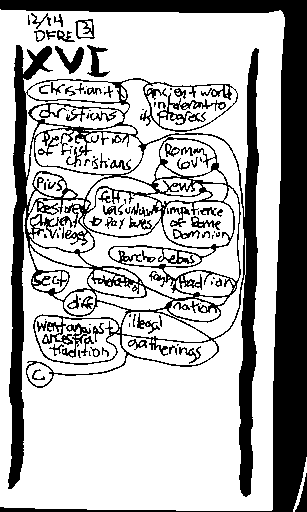 12/14
DFRE 3
XVI
Christianity
Christians
ancient world
intolerant to
its progress
Persecution
of first
Christians
Roman
Gov't
Pius
Jews
Restored
ancient
privileges
felt it
was unlawful
to pay taxes
impatience
of Rome
Dominion
Barchochebas
Sect
tolerated
Hadrian
diff
nation
went against
ancestral
tradition
illegal
gatherings
C